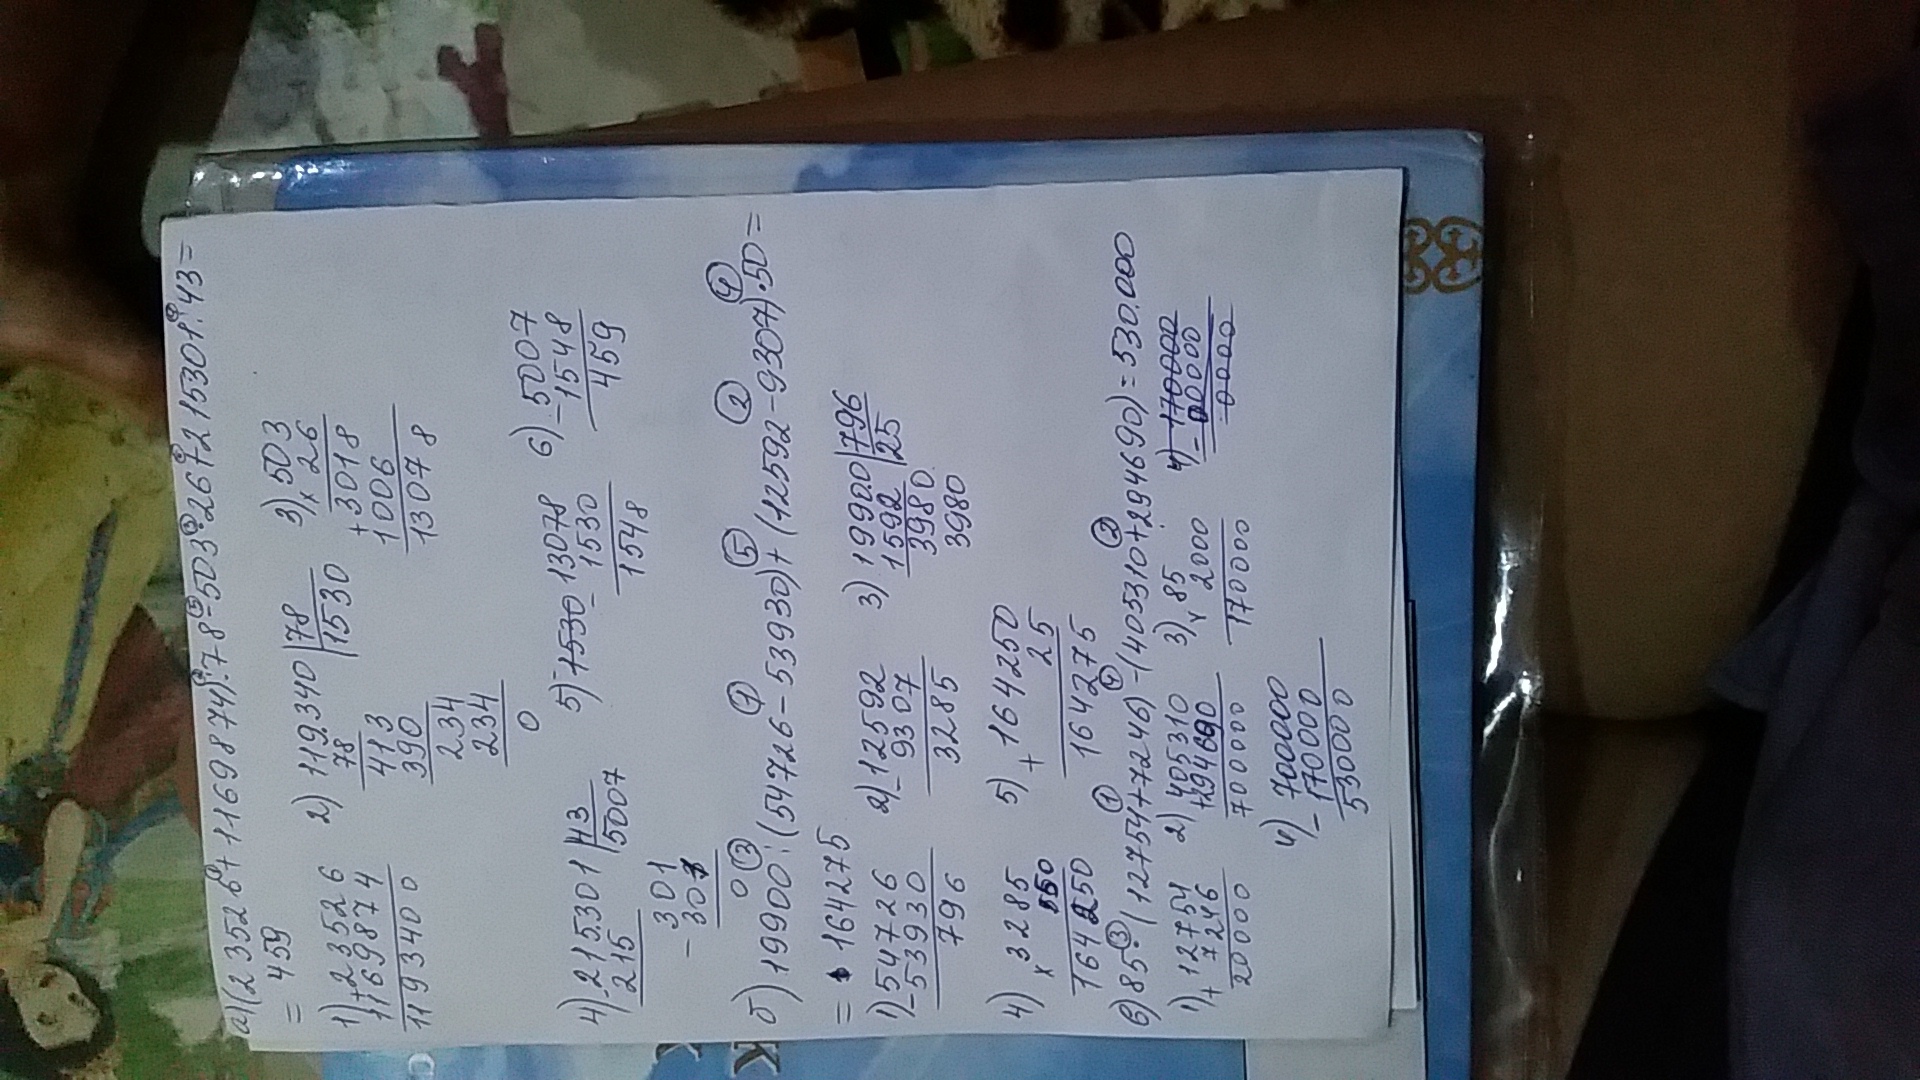 а)(23526+1169874):78-503·26+215301:43=
= 459
1)+23526 2) 119340|78 3) 503
1169874 78 |1530 × 26
1193400 413 +3018
390 1006
234 13078
234
0
4)-215301|43 5)-1530 13078 6)-5007
215 |5007 -1530 1548
301 1548 459
-301
0
б)19900:(54726-53930)+(12592-9307)·50=
= 164275
1)-54726 2)-12592 3) 19900|796
53930 9307 1592 |25
796 3285 3980
3980
4) ×3285 5) +164250
50 25
164250 164275
в)85·(12754+7246)-(405310+294690)=530.000
1)+12754 2) 405310 3)×85 4)-170000
7246 +294690 2000 00000
20000 700000 170000 00000
4)-700000
170000
530000
К